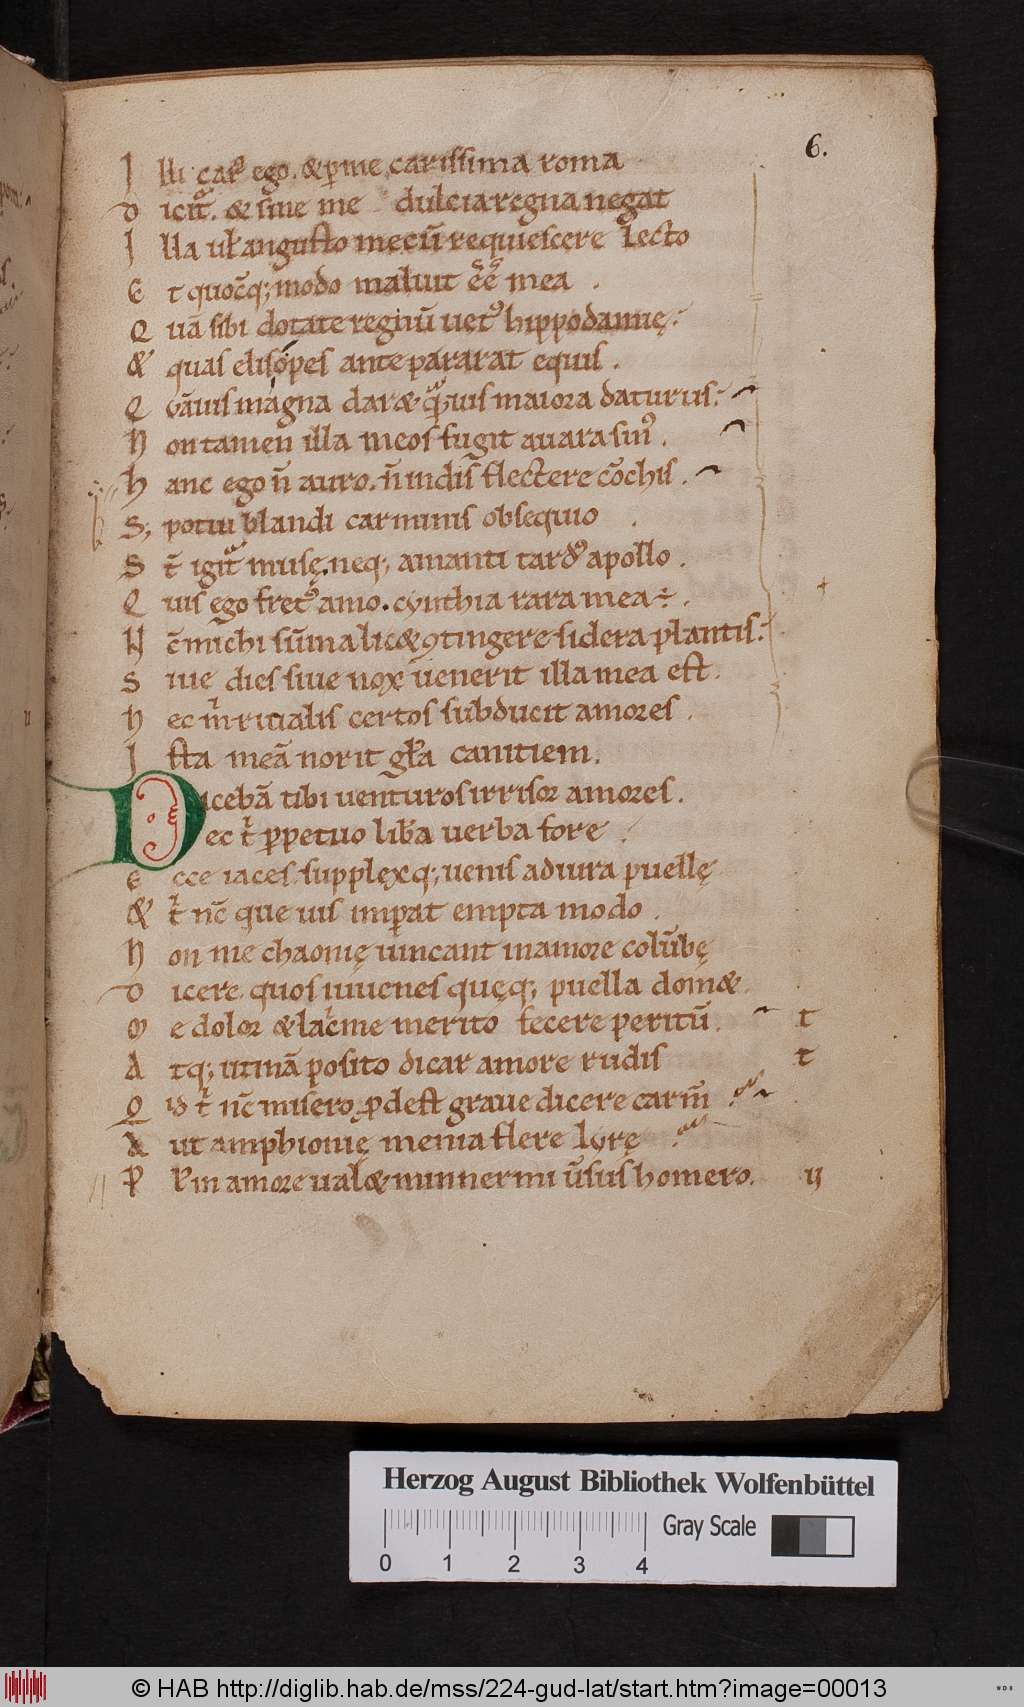 6.
I lli car᷑ ego. & ꝑ me carissima roma
D icit᷑. & sine me dulcia regna negat
I lla ul̃ angusto mecū requiescere lecto
E t quocūq; modo maluit eē̃ mea .
Q uā sibi dotate regnū uet᷒ hippodamię.
& quas elis opes ante pararat equis .
Q vāuis magna dar& q̃uis maiora daturus.
N on tamen illa meos fugit auara sin᷒ .
h anc ego ñ auro. ñ indis flectere cōchis .
S; potui blandi carminis obsequio .
S t̄ igit᷑ musę, neq; amanti tard᷒ apollo .
Q uis ego fret᷒ amo. cynthia rara mea÷ .
N c̄ michi sūma lic& ꝯtingere sidera plantis.
S iue dies siue nox uenerit illa mea est .
N ec m̄ riualis certos subducit amores .
I sta meā norit gl̃a canitiem .
D icebā tibi uenturos irrisor amores .
ec t̄ ꝑpetuo lib̃a uerba fore .
E cce iaces supplexq; uenis ad iura puellę
& t̄ nc̄ que uis imꝑat empta modo .
N on me chaonię uincant in amore colūbę
D icere quos iuuenes quęq; puella dom&
M e dolor & lac̃me merito fecere peritū . t
A tq; utinā posito dicar amore rudis t
Q id t̄ nc̄ misero ꝓdest graue dicere carm̄
A ut amphionię menia flere lyrę
P l᷒ in amore ual& minnermi ūsus homero. ij
Herzog August Bibliothek Wolfenbüttel
Gray Scale
0 1 2 3 4
© HAB http://diglib.hab.de/mss/224-gud-lat/start.htm?image=00013